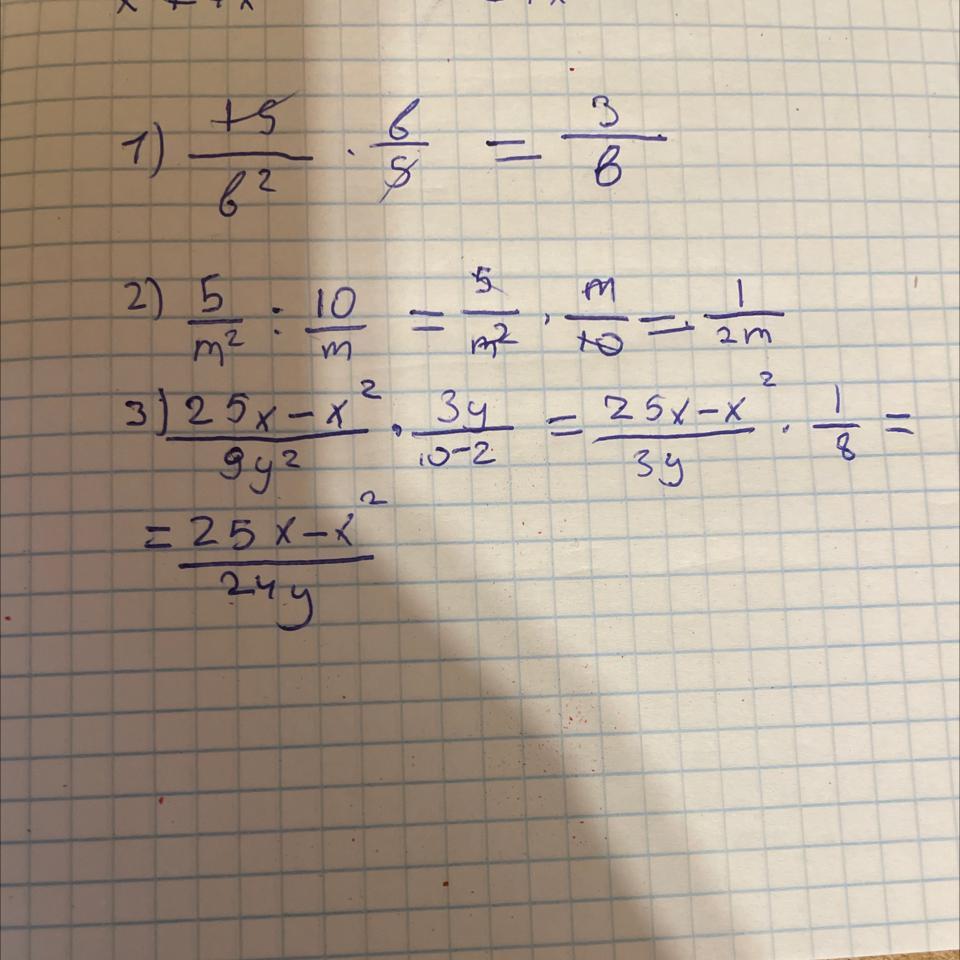 1) 15/в² · в/5 = 3/в
2) 5/m² : 10/m = 5/m² · m/10 = 1/2m
3) 25x-x²/9y² · 3y/10-2 = 25x-x²/3y · 1/8 =
= 25x-x²/24y